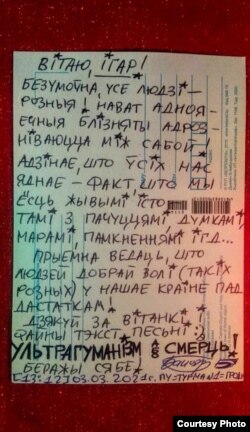 ВІТАЮ, ІГАР!
БЕЗУМОЎНА, УСЕ ЛЮДЗІ –
РОЗНЫЯ! НАВАТ АДНОЯ–
ЕЧНЫЯ БЛІЗНЯТЫ АДРОЗ–
НІВАЮЦЦА МІЖ САБОЙ!
АДЗІНАЕ, ШТО ЎСІХ НАС
ЯДНАЕ – ФАКТ, ШТО МЫ
ЁСЦЬ ЖЫВЫМІ ІСТО
ТАМІ З ПАЧУЦЦЯМІ, ДУМКАМІ,
МАРАМІ, ПАМКНЕННЯМІ І Г.Д...
ПРЫЕМНА ВЕДАЦЬ, ШТО
ЛЮДЗЕЙ ДОБРАЙ ВОЛІ (ТАКІХ
РОЗНЫХ) У НАШАЕ КРАІНЕ ПАД
ДАСТАТКАМ!
ДЗЯКУЙ ЗА ВІТАНКІ Й
ФАЙНЫ ТЭКСТ ПЕСЬНІ :)
УЛЬТРАГУМАНІЗМ АБО СМЕРЦЬ!
БЕРАЖЫ СЯБЕ.
[13:12] 03.03.2021 г.
Courtesy Photo